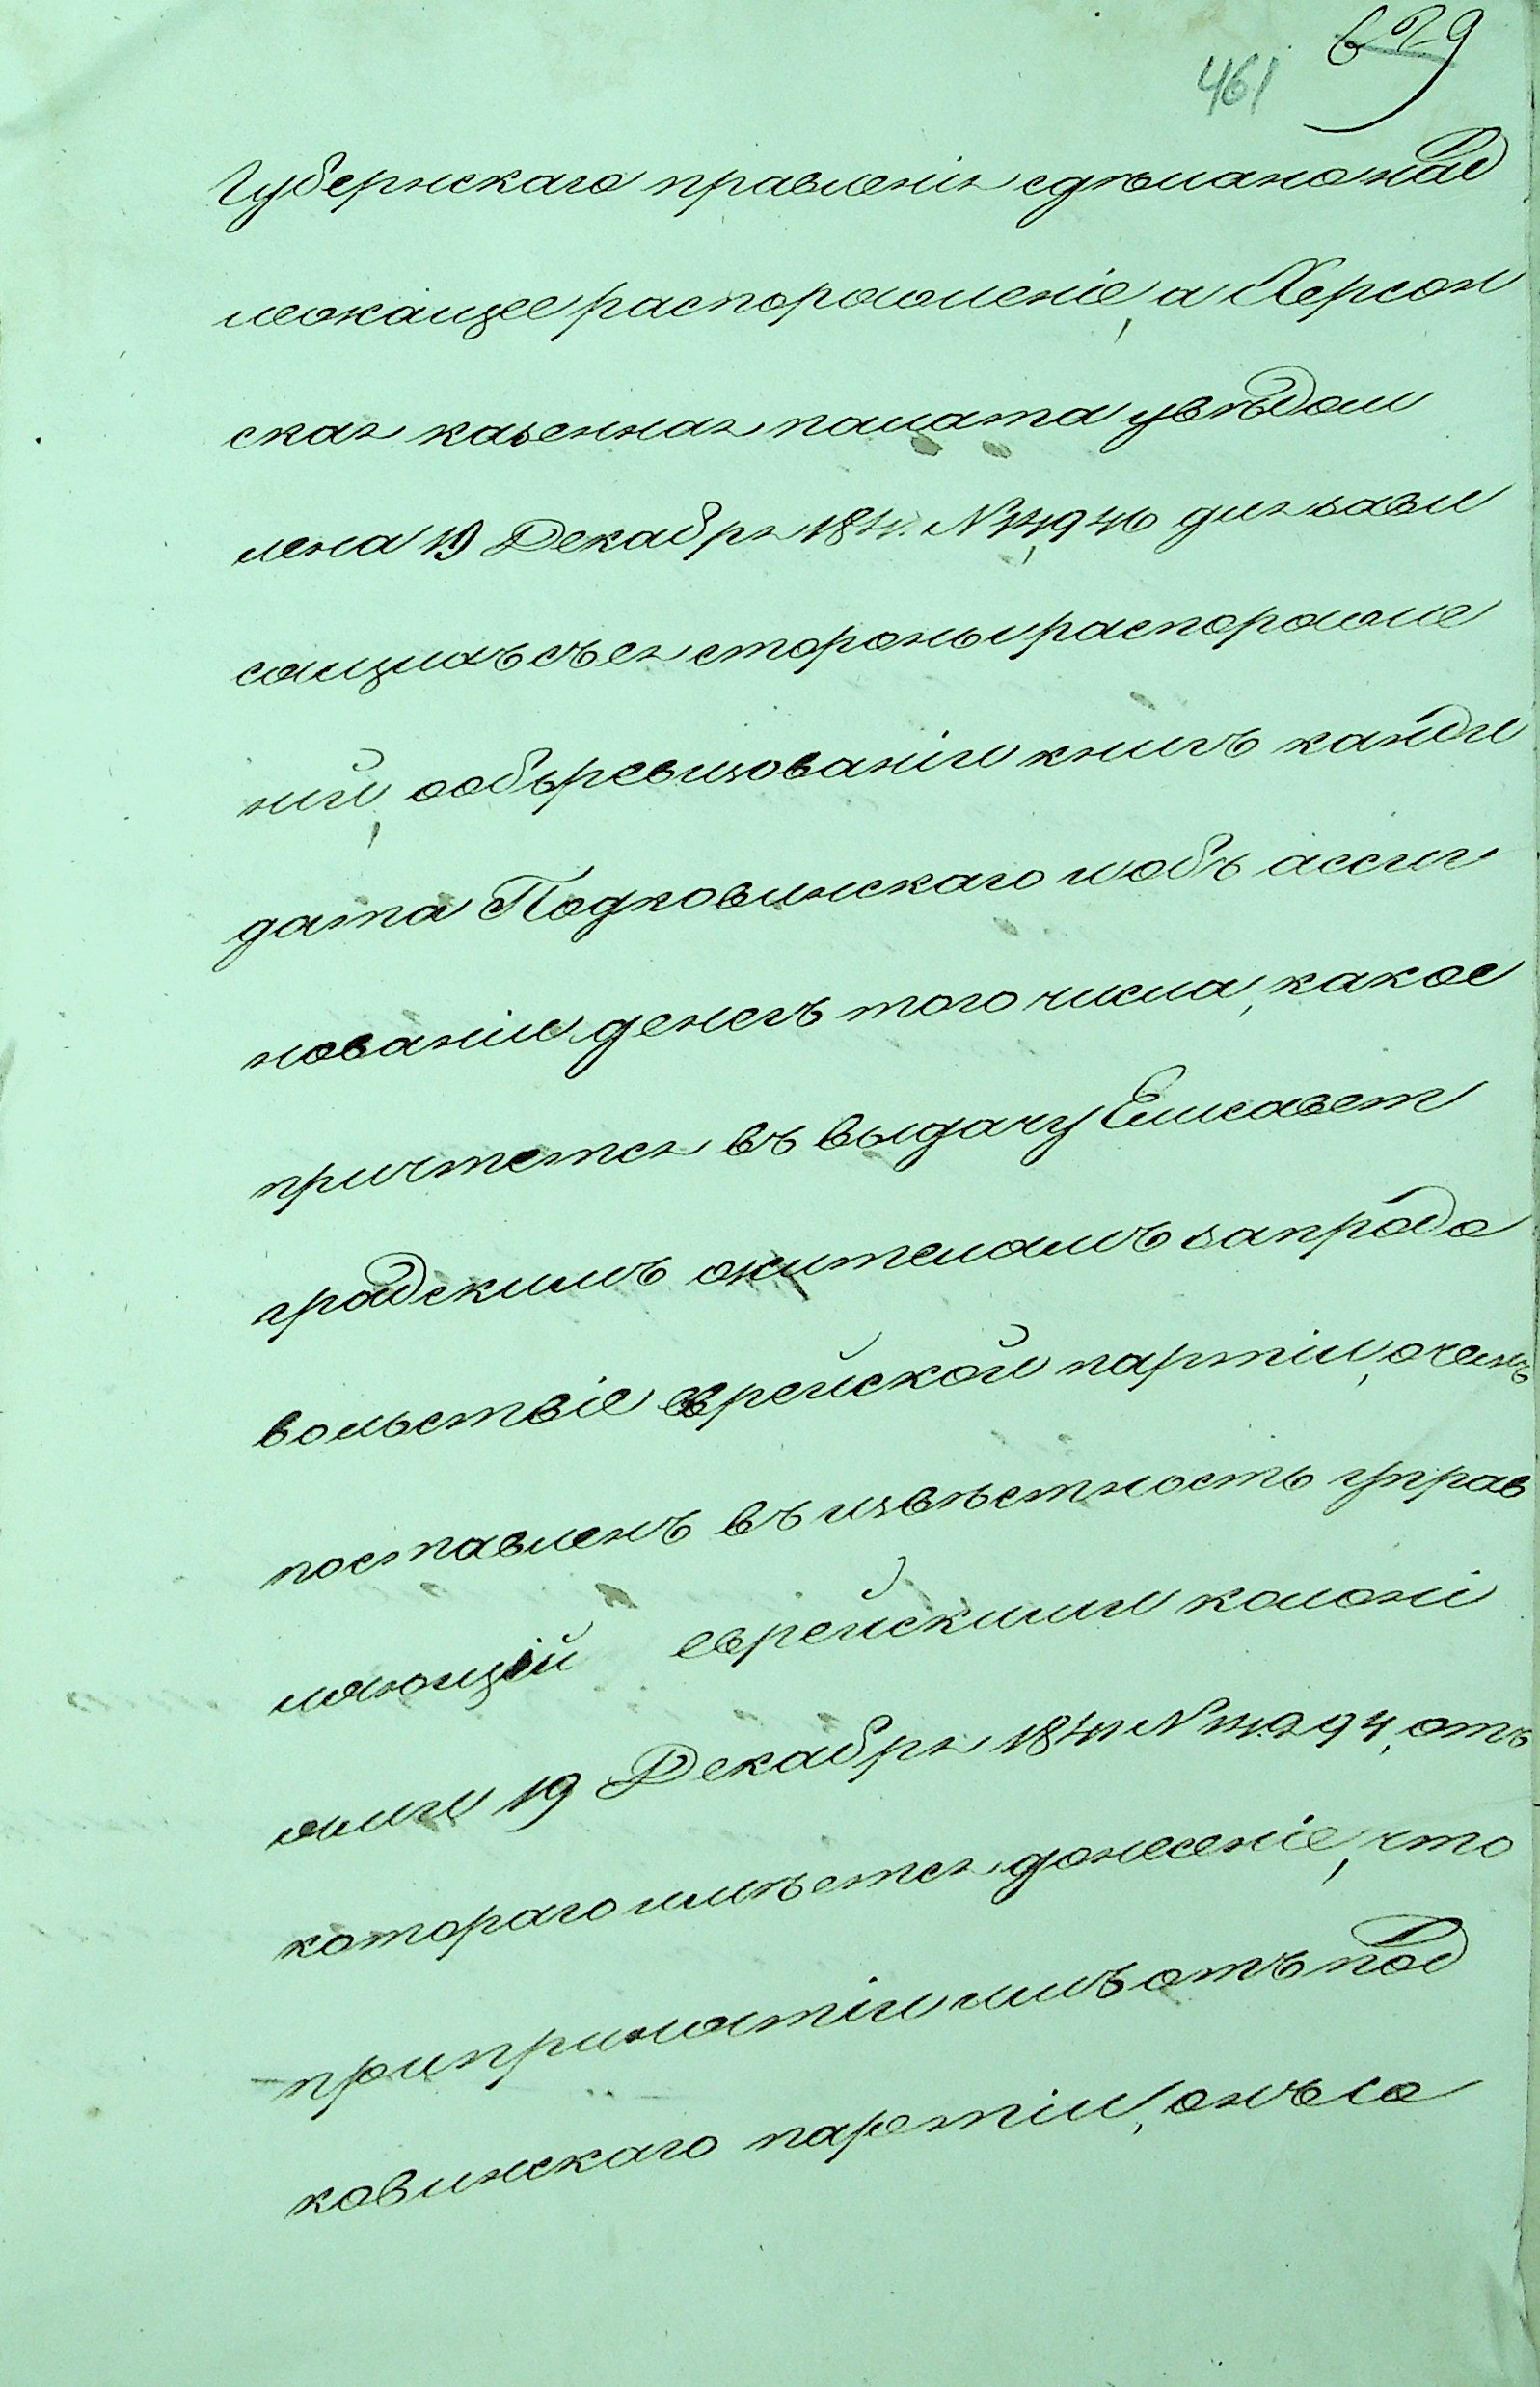 629
461
Губернскаго правленія сдѣлано над
лежащее распоряженіе, а Херсон
ская казенная палата увѣдом
лена 19 Декабря 1841. № 14946 для зави
сящихъ съ ея стороны распоряже
ній, объ ревизованіи книгъ канди
дата Подковинскаго и объ ассиг
нованіи денегъ того числа, какое
причтется въ выдачу Елисавет
градскимъ жителямъ за продо
вольствіе еврейской партіи, о чемъ
поставленъ въ извѣстность управ
ляющій еврейскими колоні
ями 19 Декабря 1841 № отъ
котораго имѣется донесеніе, что
при принятіи имъ отъ Под
ковинскаго партіи, онъ со